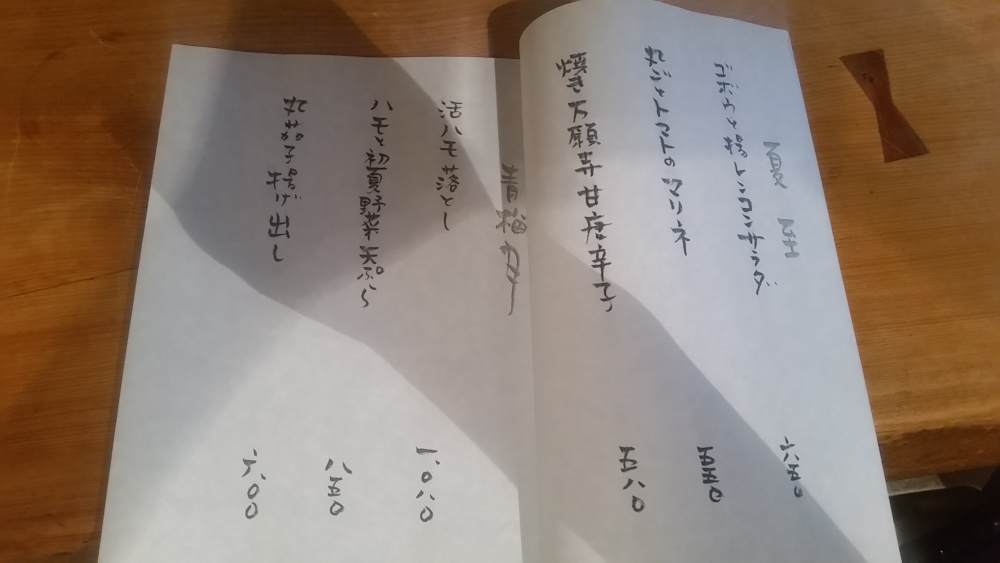 夏至
ゴボウと揚レンコンサラダ 六五〇
丸ごとトマトのマリネ 五五〇
焼き万願寺甘唐辛子 五八〇
活ハモ落とし 一、〇八〇
ハモと初夏野菜天ぷら 八五〇
丸茄子揚げ出し 六〇〇